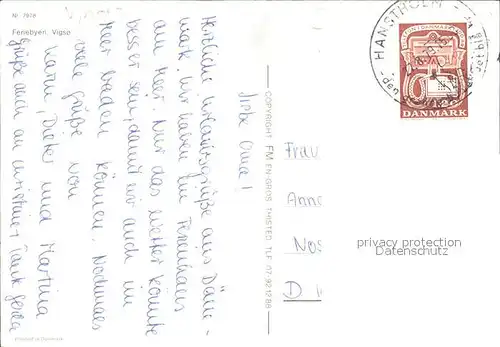 Nr. 7978
Feriebyen. Vigsø
Liebe Oma!
Herzliche Urlaubsgrüße aus Däne-
mark. Wir haben ein Ferienhaus
am Meer. Nur das Wetter könnte
besser sein, damit wir auch im
Meer baden können. Nochmals
viele Grüße von
Karin, Dieter und Martina
Grüße auch an
Printed in Denmark
COPYRIGHT FM EN-GROS THISTED TLF 07-921288
HANSTHOLM
DANMARK
Frau
Anna
D
privacy protection
Datenschutz